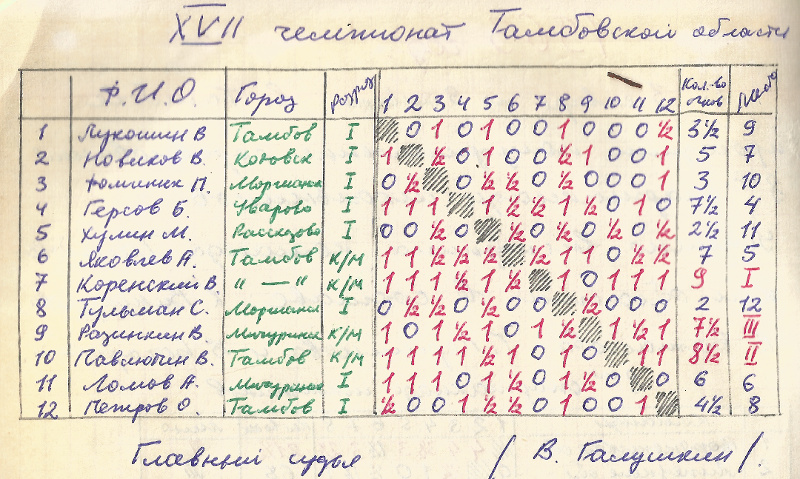 XVII чемпионат Тамбовской области
Ф.И.О. Город разряд 1 2 3 4 5 6 7 8 9 10 11 12 Кол-во очков место
1 Лукошин В Тамбов I 0 1 0 1 0 0 1 0 0 0 ½ 3½ 9
2 Новиков В. Котовск I 1 ½ 0 1 0 0 ½ 1 0 0 1 5 7
3 Фоминых П. Моршанск I 0 ½ 0 ½ ½ 0 ½ 0 0 0 1 3 10
4 Герсов Б. Уварово I 1 1 1 1 ½ ½ 1 ½ 0 1 0 7½ 4
5 Хулин М. Рассказово I 0 0 ½ 0 ½ 0 ½ 0 ½ 0 ½ 2½ 11
6 Яковлев А. Тамбов к/м 1 1 ½ ½ ½ ½ 1 1 0 ½ ½ 7 5
7 Коренский В. " — " к/м 1 1 1 ½ 1 ½ 1 0 1 1 1 9 I
8 Тульман С. Моршанск I 0 ½ ½ 0 ½ 0 0 ½ 0 0 0 2 12
9 Разинкин В. Мичуринск к/м 1 0 1 ½ 1 0 1 ½ 1 ½ 1 7½ III
10 Павлютин В. Тамбов к/м 1 1 1 1 ½ 1 0 1 0 1 1 8½ II
11 Ломов А. Мичуринск I 1 1 1 0 1 ½ 0 1 ½ 0 0 6 6
12 Петров О. Тамбов I ½ 0 0 1 ½ ½ 0 1 0 0 1 4½ 8
Главный судья / В. Галушкин /.